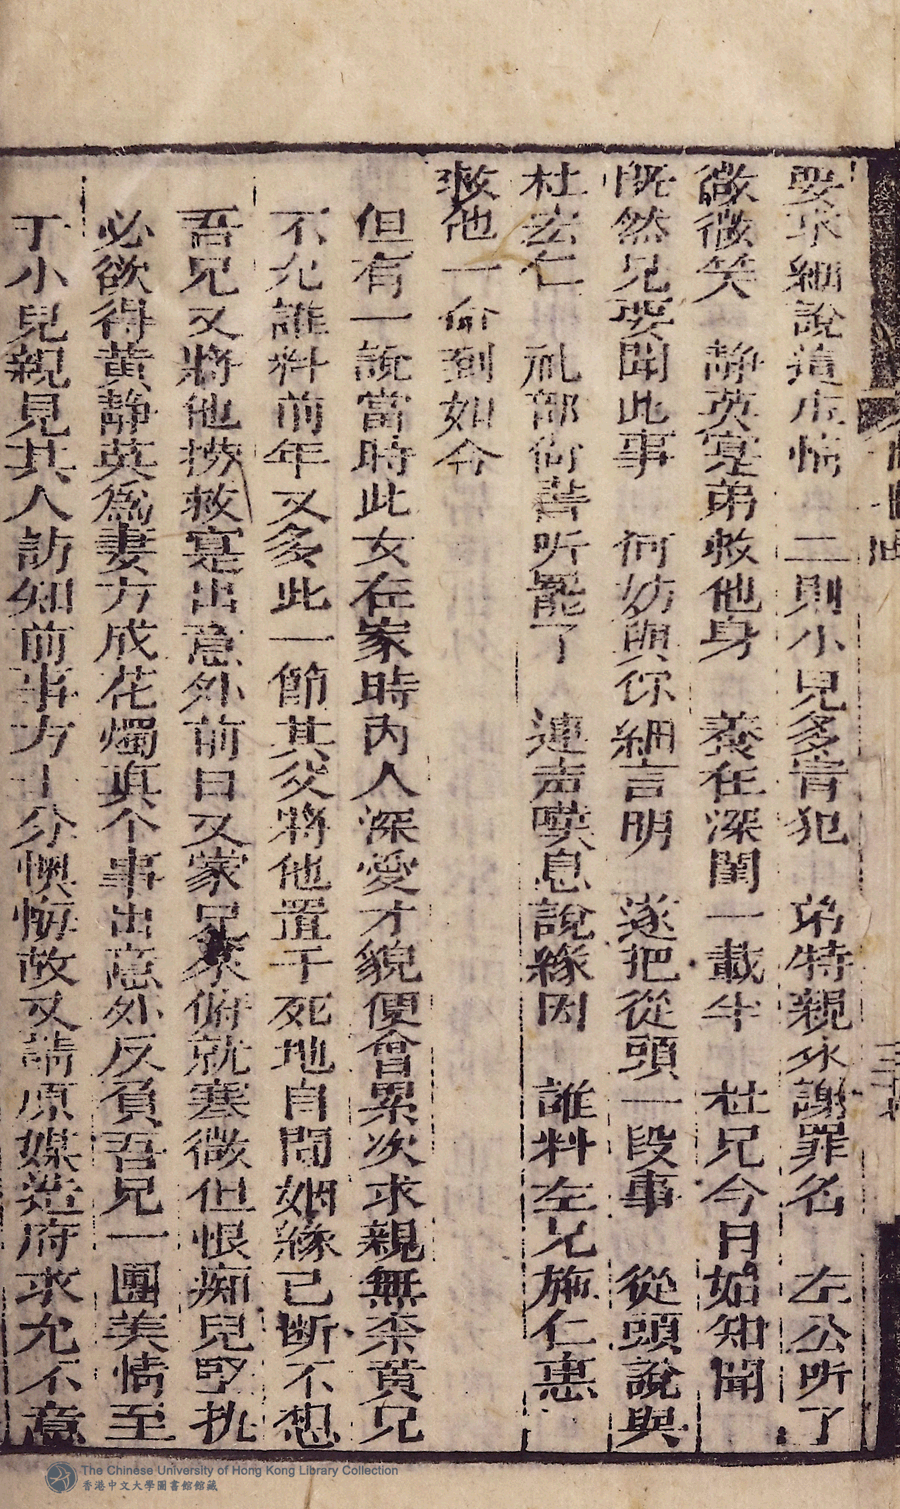 要求細說這庄情 二則小兒多冐犯 弟特親來謝罪名 左公听了
微微笑 静英寔弟救他身 養在深閨一載半 杜兄今日如知聞
既然兄要聞此事 何妨與你細言明 遂把從頭一段事 從頭說與
杜宏仁 礼部尚書听罷了 連声嘆息說緣因 誰料左兄施仁惠
救他一命到如今
但有一說當時此女在家時内人深愛才貌便會累次求親無柰黄兄
不允誰料前年又多此一節其父將他置于死地自問姻緣已断不想
吾兄又將他撈救寔出意外前日又家兄來俯就寒微但恨痴兒堅执
必欲得黄静英爲妻方成花燭真个事出意外反負吾兄一團美情至
于小兒親見其人訪知前事方十分懊悔故又請原媒造府求允不意
The Chinese University of Hong Kong Library Collection
香港中文大學圖書館館藏